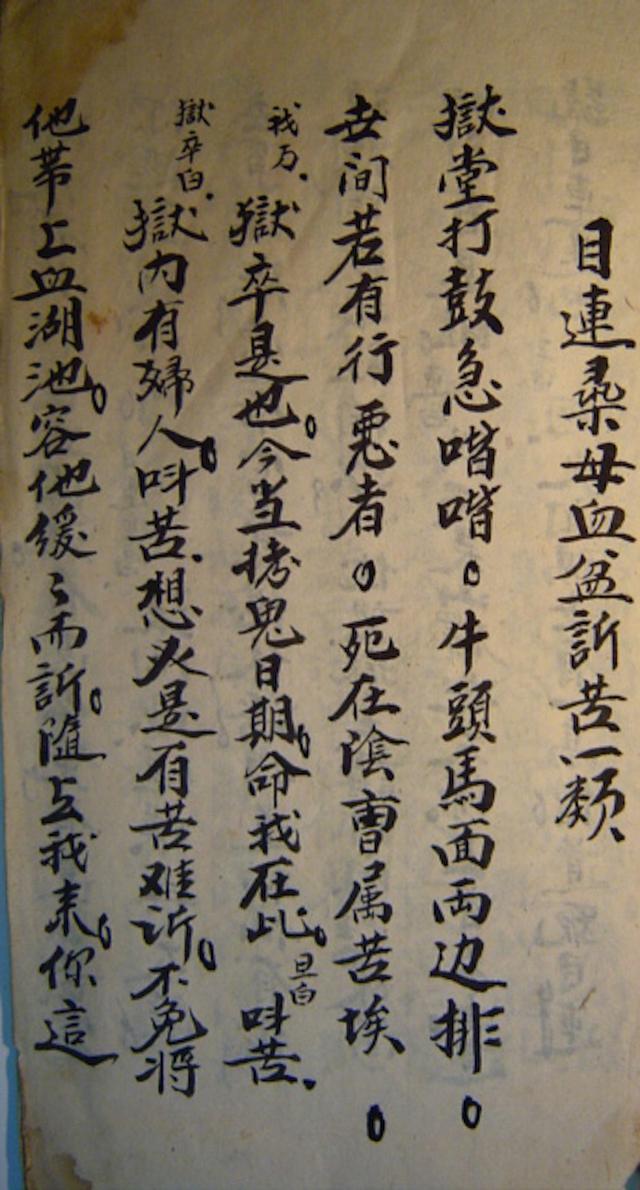 目連尋母血盆訴苦一類
獄堂打鼓急喈喈。牛頭馬面兩边排。
世间若有行惡者。死在陰曹属苦埃。
我万。獄卒是也。今当拷鬼日期。命我在此。旦白 叫苦。
獄卒白。獄内有婦人。叫苦。想必是有苦难訴。不免将
他帯上血湖池。容他緩〻而訴。隨上我来。你這